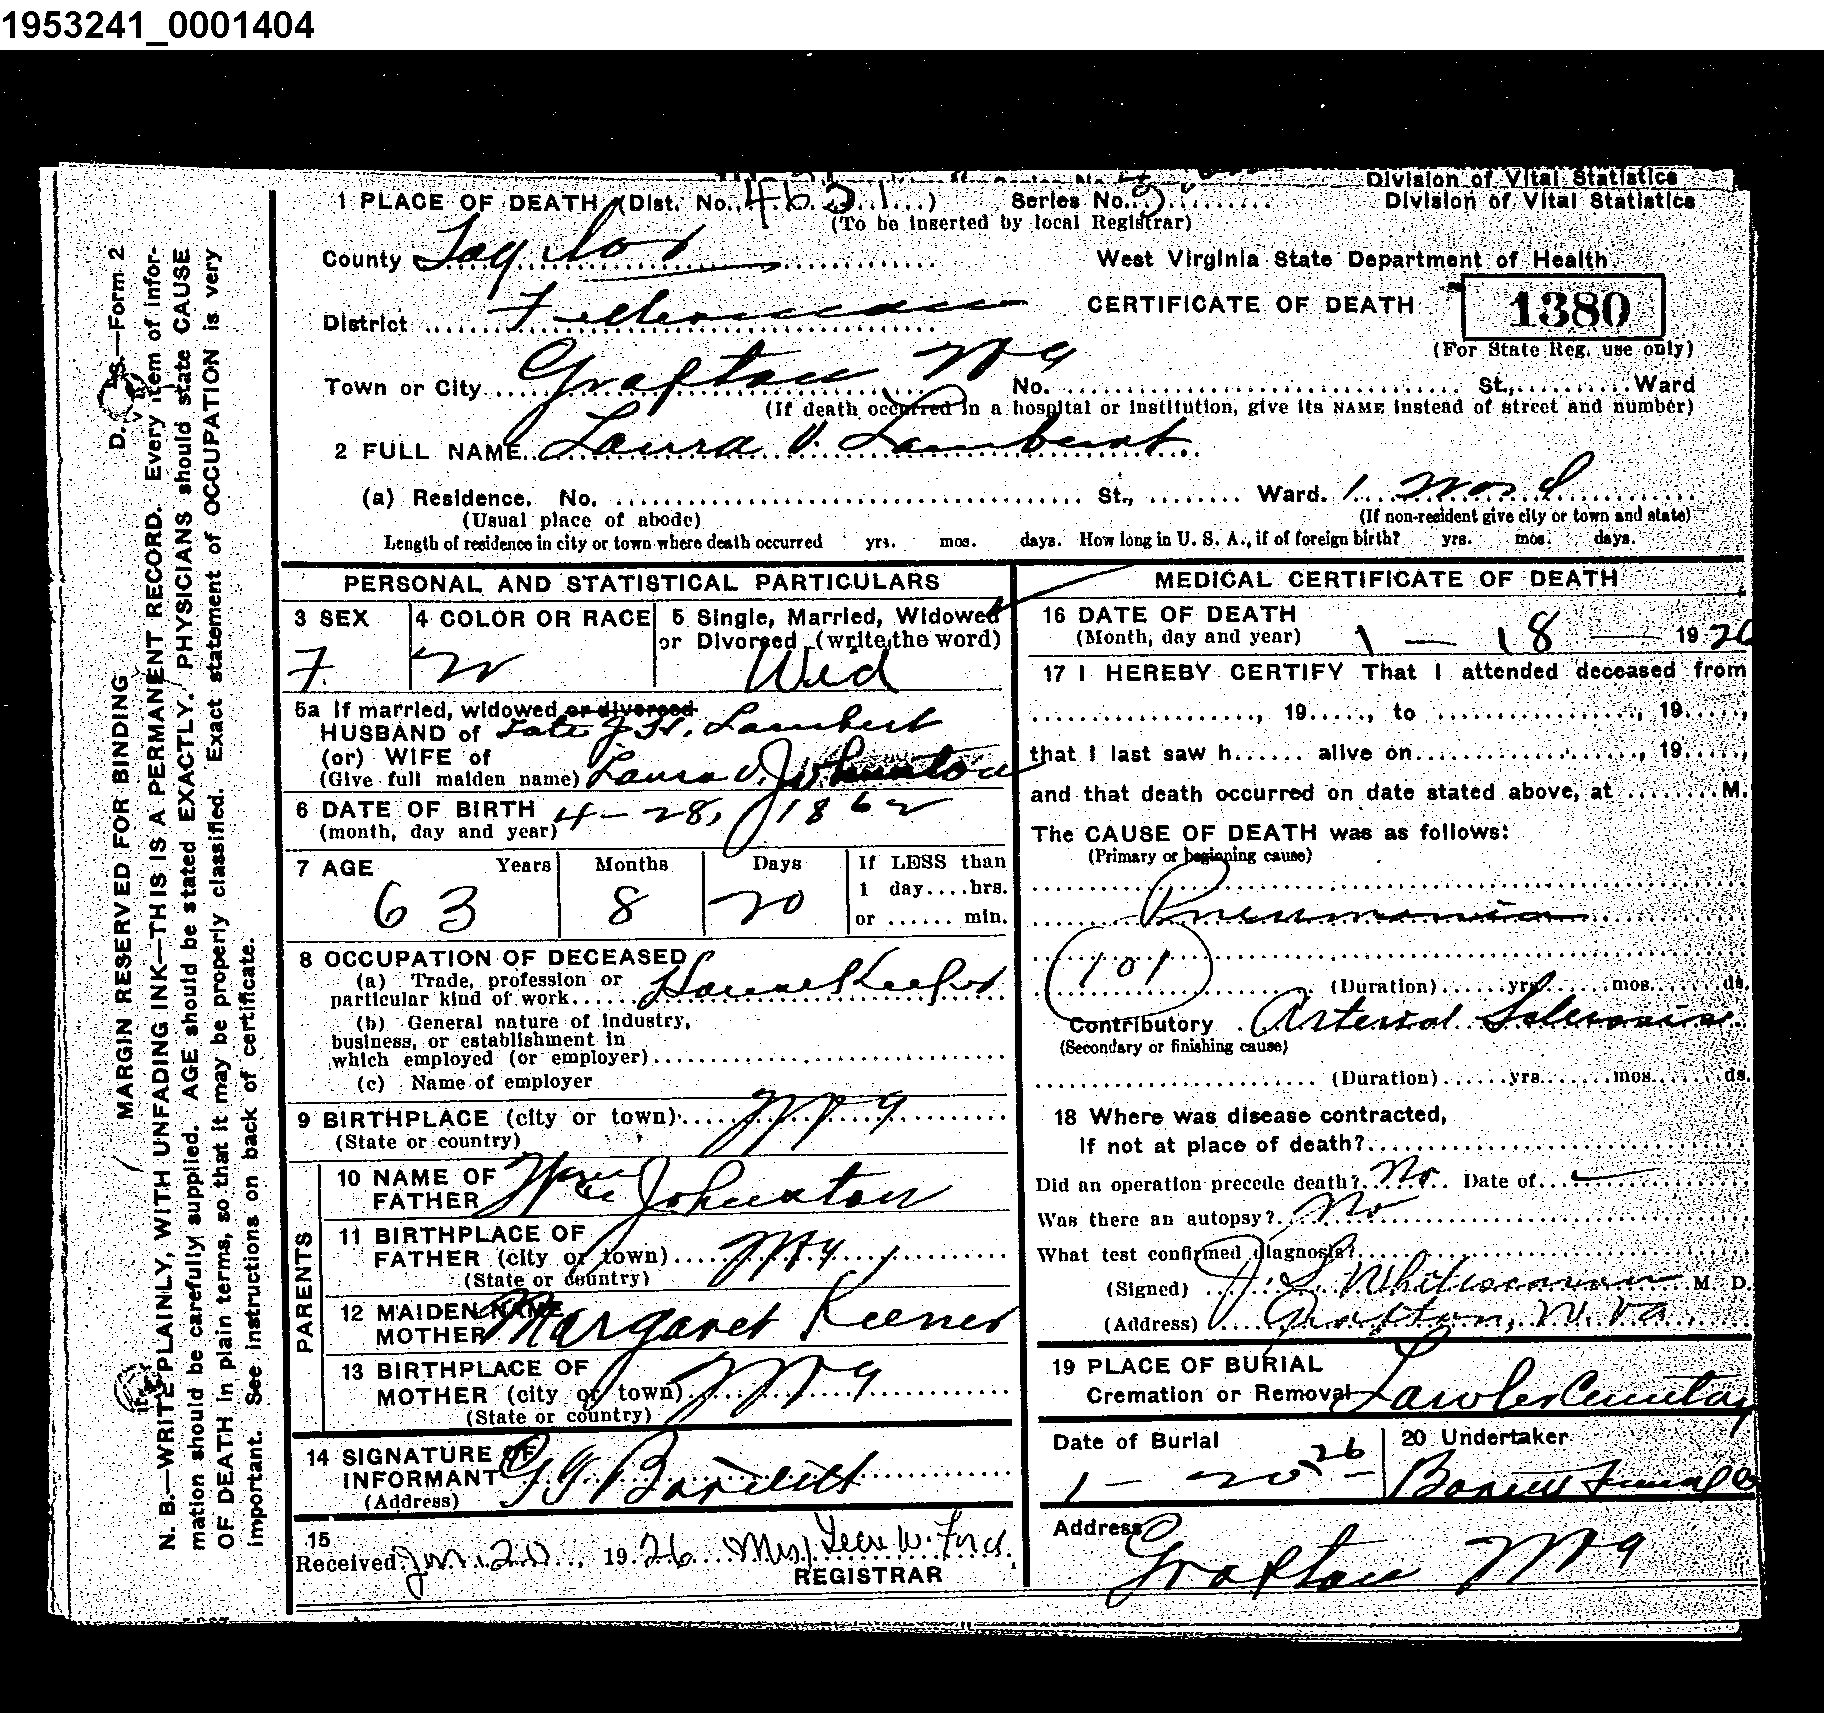 1953241_0001404
Division of Vital Statistics
1 PLACE OF DEATH (Dist. No. 4621) Series No. 9
Division of Vital Statistics
(To be inserted by local Registrar)
County Taylor
West Virginia State Department of Health
District Fetterman
CERTIFICATE OF DEATH 1380
(For State Reg. use only)
Town or City Grafton W Va No. St., Ward
(If death occurred in a hospital or institution, give its NAME instead of street and number)
2 FULL NAME Laura V. Lambert.
(a) Residence. No. St., Ward. 1 Ward
(Usual place of abode) (If non-resident give city or town and state)
Length of residence in city or town where death occurred yrs. mos. days. How long in U. S. A., if of foreign birth? yrs. mos. days.
PERSONAL AND STATISTICAL PARTICULARS
3 SEX
F.
4 COLOR OR RACE
W
5 Single, Married, Widowed
or Divorced (write the word)
Wid
5a If married, widowed or divorced
HUSBAND of Late J. H. Lambert
(or) WIFE of
(Give full maiden name) Laura V. Johnston
6 DATE OF BIRTH
(month, day and year) 4-28, 1862
7 AGE Years Months Days If LESS than
1 day....hrs.
63 8 20
or ...... min.
8 OCCUPATION OF DECEASED
(a) Trade, profession or
particular kind of work House Keeper
(b) General nature of industry,
business, or establishment in
which employed (or employer)
(c) Name of employer
9 BIRTHPLACE (city or town) W Va
(State or country)
PARENTS
10 NAME OF
FATHER Wm Johnston
11 BIRTHPLACE OF
FATHER (city or town)
(State or country)
12 MAIDEN NAME
MOTHER Margaret Keener
13 BIRTHPLACE OF
MOTHER (city or town) W Va
(State or country)
14 SIGNATURE OF
INFORMANT G G Bartlett
(Address)
15
Received Jan. 20, 1926 Mrs. W. Ford
REGISTRAR
MEDICAL CERTIFICATE OF DEATH
16 DATE OF DEATH
(Month, day and year) 1 — 18 — 1926
17 I HEREBY CERTIFY That I attended deceased from
, 19....., to , 19.....,
that I last saw h...... alive on , 19.....,
and that death occurred on date stated above, at M.
The CAUSE OF DEATH was as follows:
(Primary or beginning cause)
Pneumonia
101
(Duration) yrs. mos. ds.
Contributory Arterial Sclerosis
(Secondary or finishing cause)
(Duration) yrs. mos. ds.
18 Where was disease contracted,
if not at place of death?
Did an operation precede death? No. Date of —
Was there an autopsy? No
What test confirmed diagnosis?
(Signed) Whitescarver M. D.
(Address) Grafton, W. Va.
19 PLACE OF BURIAL
Cremation or Removal Lawler Cemetay
Date of Burial
1 - 20 - 26
20 Undertaker
Address
Grafton W Va
D. V. S.—Form 2
MARGIN RESERVED FOR BINDING
N. B.—WRITE PLAINLY, WITH UNFADING INK—THIS IS A PERMANENT RECORD. Every item of infor-
mation should be carefully supplied. AGE should be stated EXACTLY. PHYSICIANS should state CAUSE
OF DEATH in plain terms, so that it may be properly classified. Exact statement of OCCUPATION is very
important. See instructions on back of certificate.